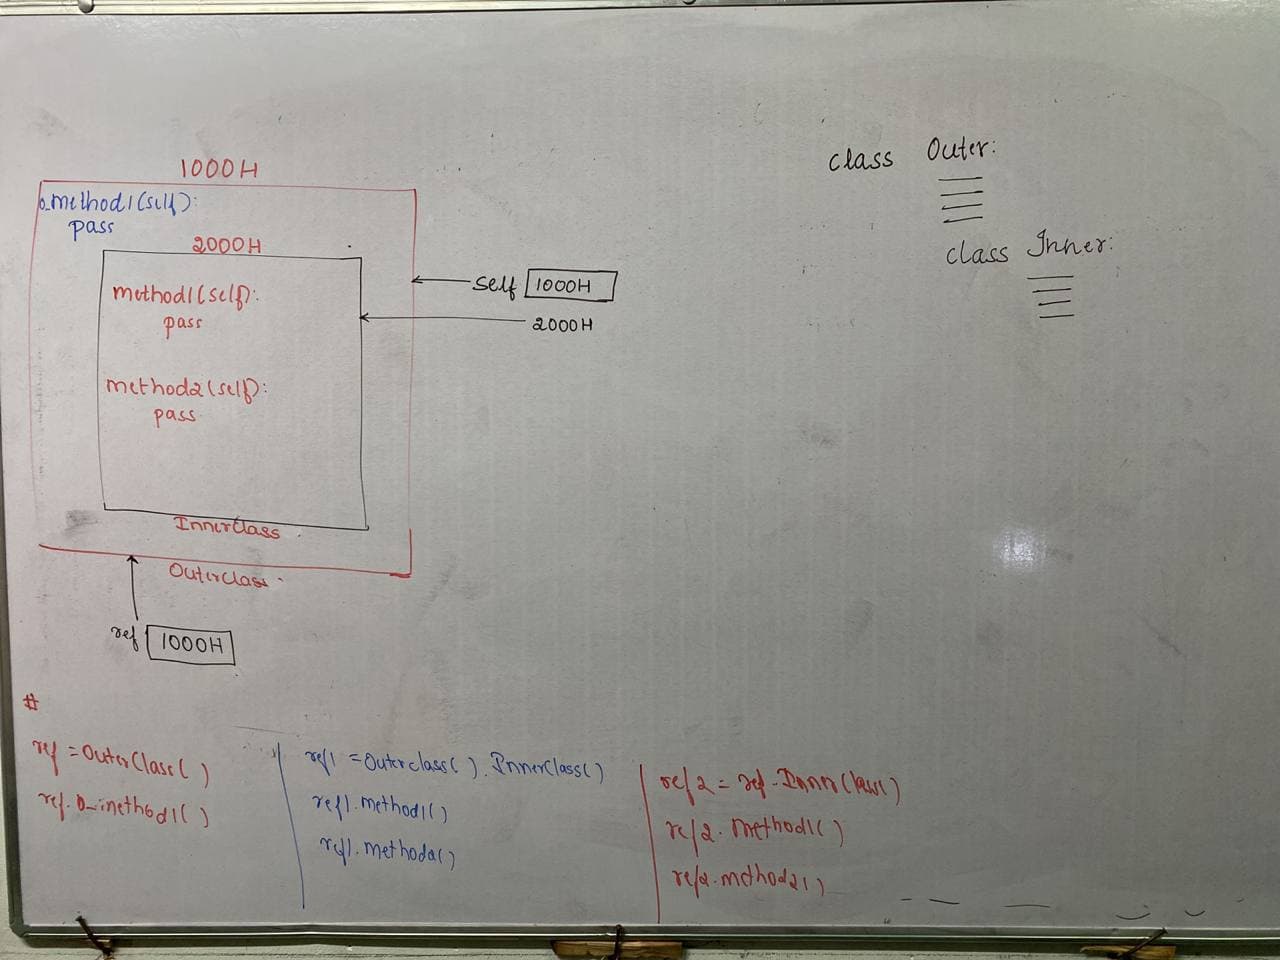 1000H
o_method1(self):
pass
2000H
method1(self):
pass
method2(self):
pass
InnerClass
OuterClass
self 1000H
2000H
ref 1000H
class Outer:
class Inner:
#
ref = OuterClass()
ref.o_method1()
ref1 = Outerclass().InnerClass()
ref1.method1()
ref1.method2()
ref2 = ref.InnerClass()
ref2.method1()
ref2.method2()